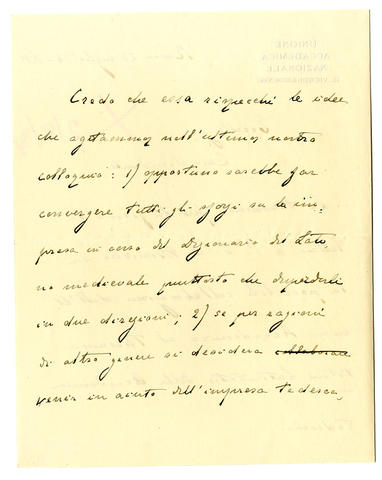 Credo che essa rispecchi le idee
che agitammo nell'ultimo nostro
colloquio: 1) opportuno sarebbe far
convergere tutti gli sforzi su la im-
presa in corso del Dizionario del Lati-
no medievale piuttosto che disperderli
in due direzioni; 2) se per ragioni
di altro genere si desidera collaborare
venir in aiuto dell'impresa tedesca,
UNIONE
ACCADEMICA
NAZIONALE